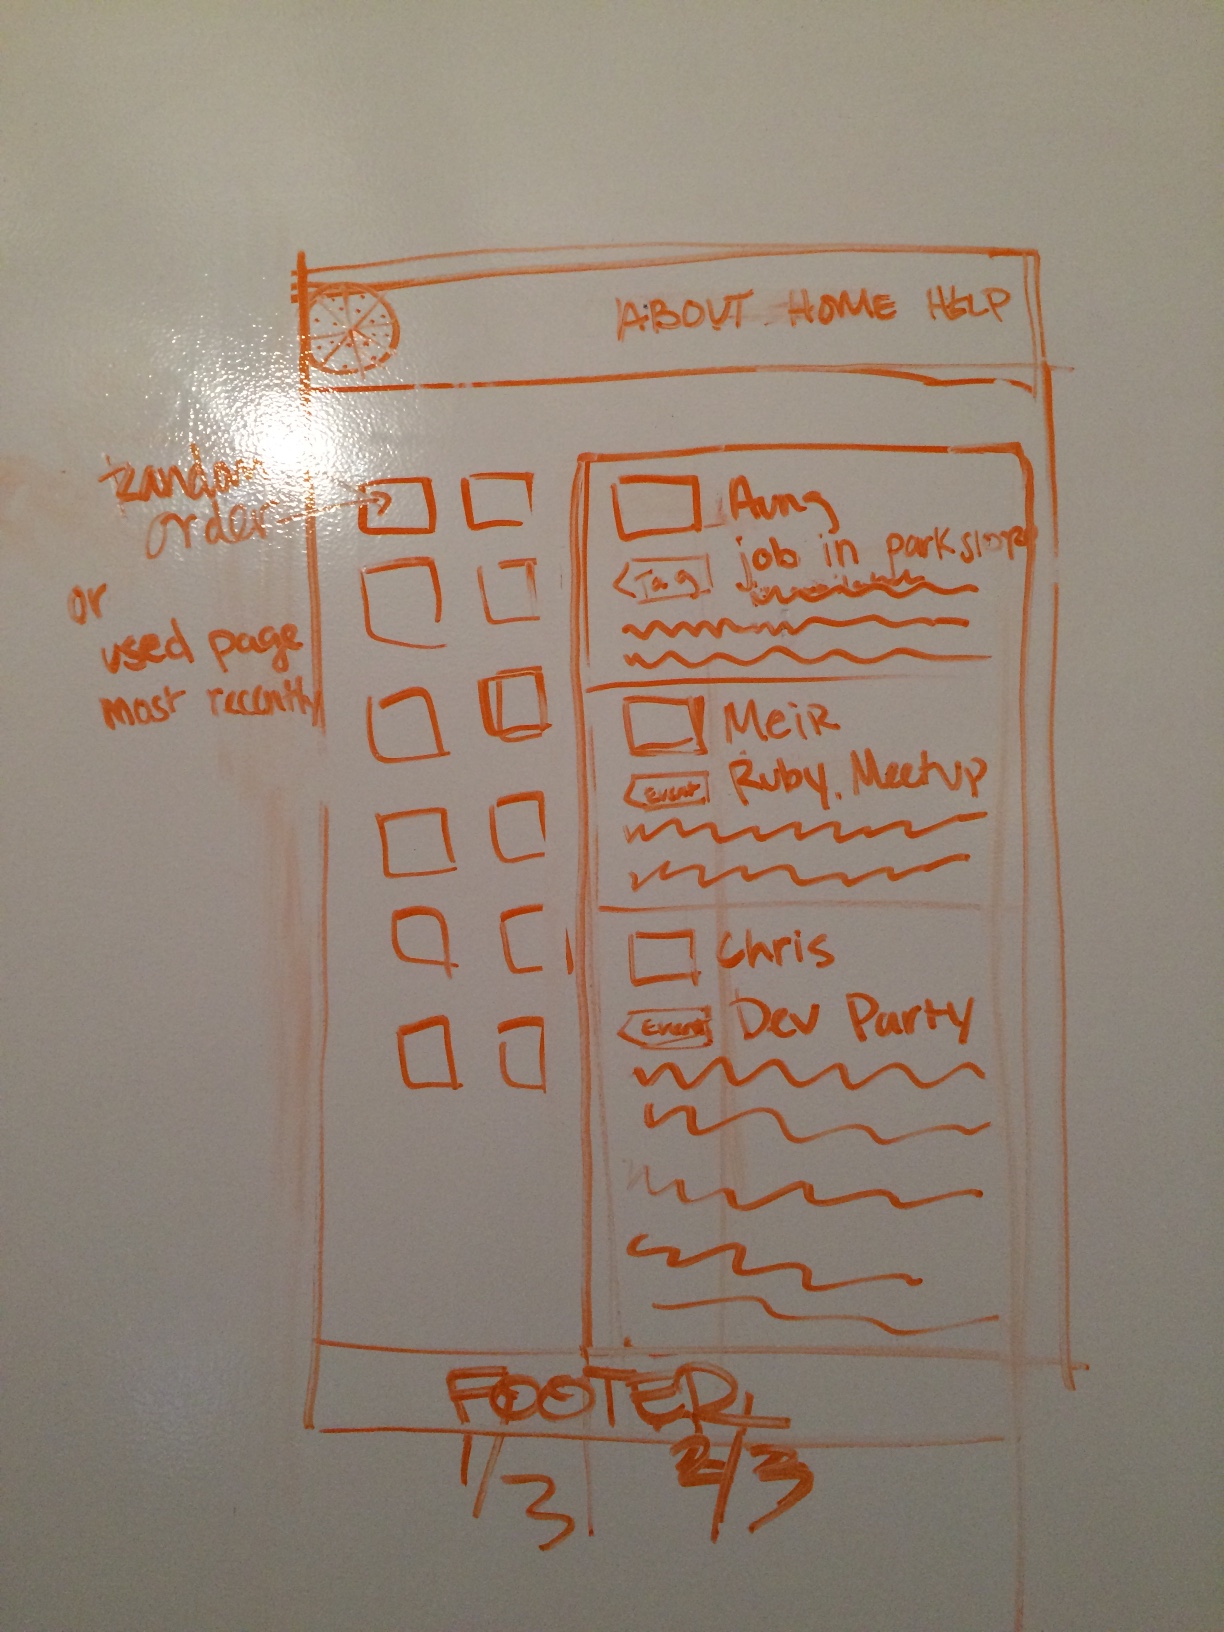 ABOUT HOME HELP
random
order
or
used page
most recently
Aung
Tag job in park slope
Meir
Event Ruby Meetup
Chris
Event Dev Party
FOOTER
1/3 2/3